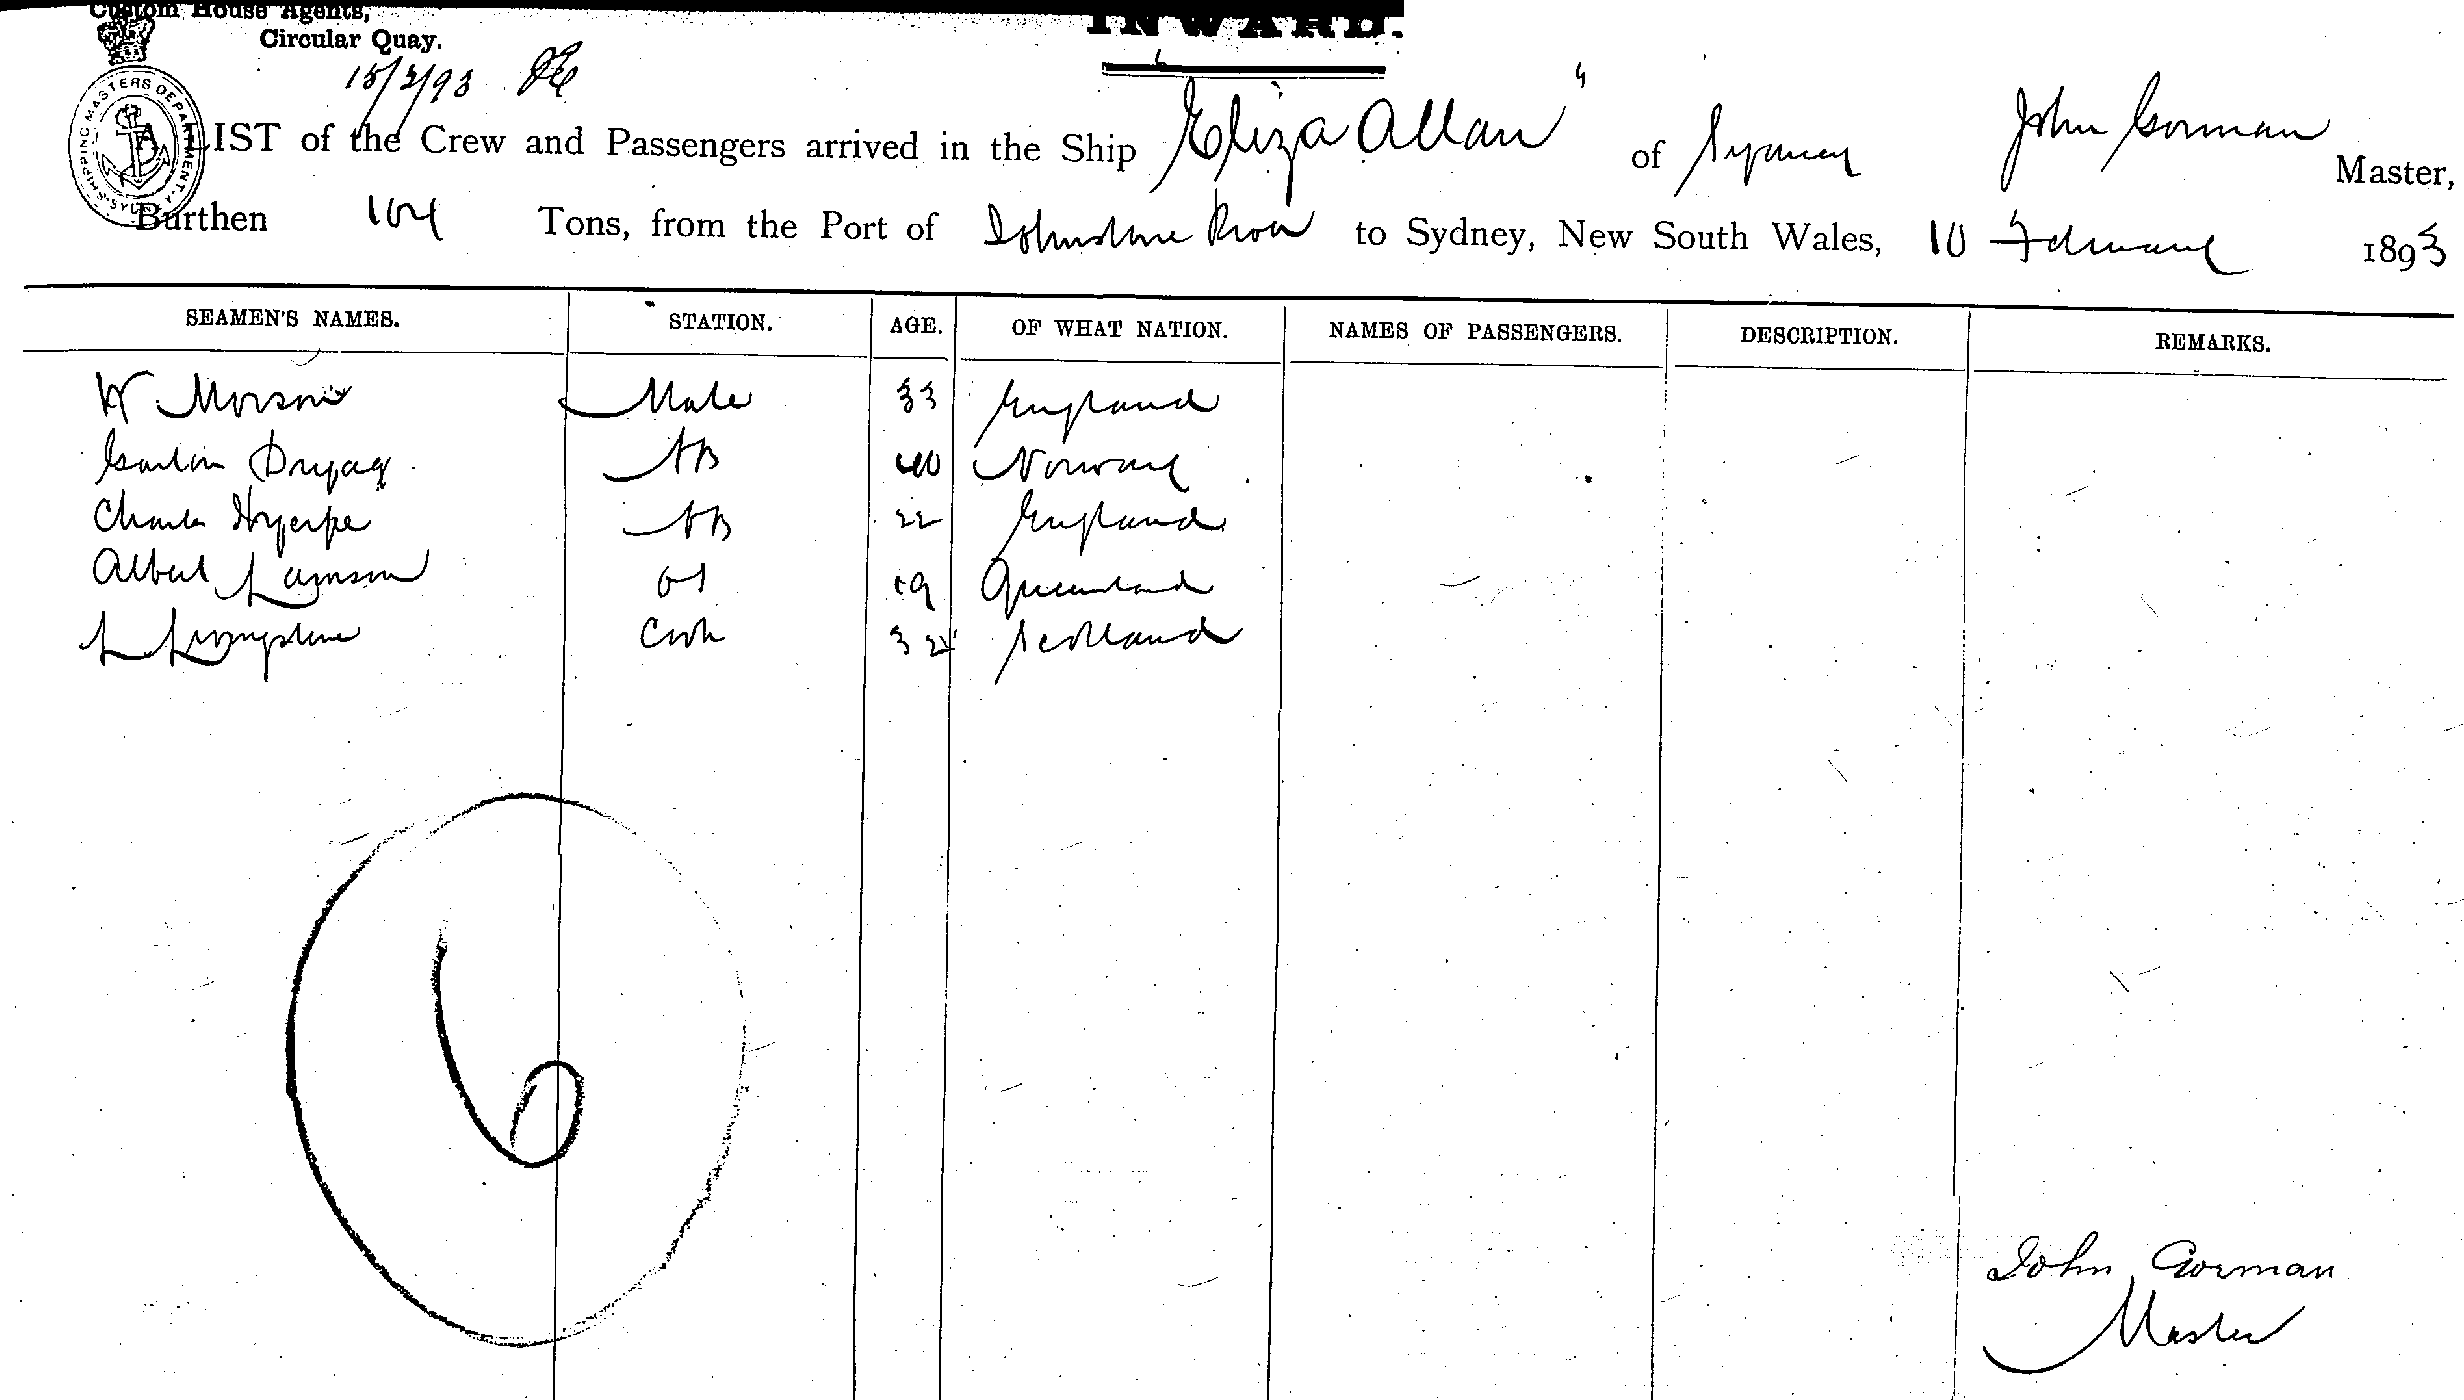 Custom House Agents,
Circular Quay.
INWARD.
15/2/93
SHIPPING MASTERS DEPARTMENT SYDNEY
A LIST of the Crew and Passengers arrived in the Ship "Eliza Allan" of Sydney John Gorman Master,
Burthen 104 Tons, from the Port of Johnstone River to Sydney, New South Wales, 10 February 1893
SEAMEN'S NAMES. STATION. AGE. OF WHAT NATION. NAMES OF PASSENGERS. DESCRIPTION. REMARKS.
W Morson Mate 33 England
AB 40 Norway
Charles AB 22 England
Albert OS 19 Queensland
L Livingstone Cook 32 Scotland
6
John Gorman
Master